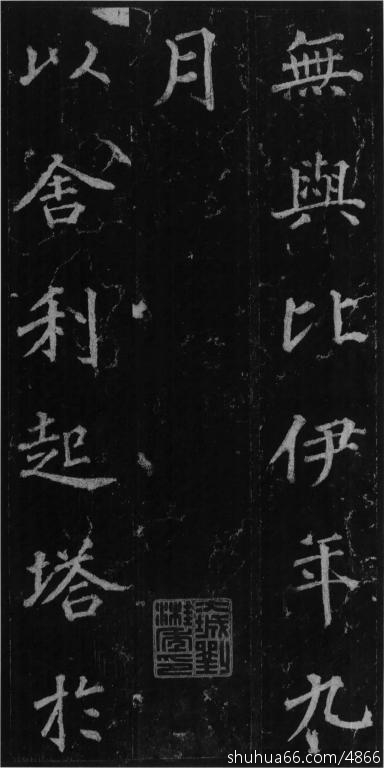 無與比伊年九
月
以舍利起塔於
shuhua66.com/4866